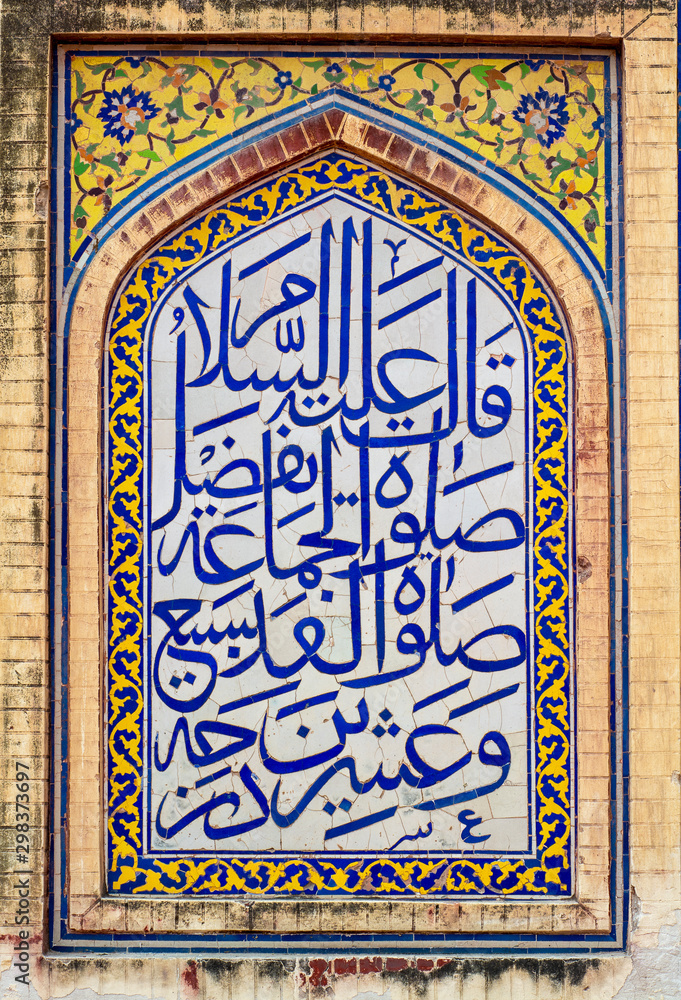 قال عليه السلام
صلوة الجماعة تفضل
صلوة الفذ بسبع
وعشرين درجه
Adobe Stock | #298373697